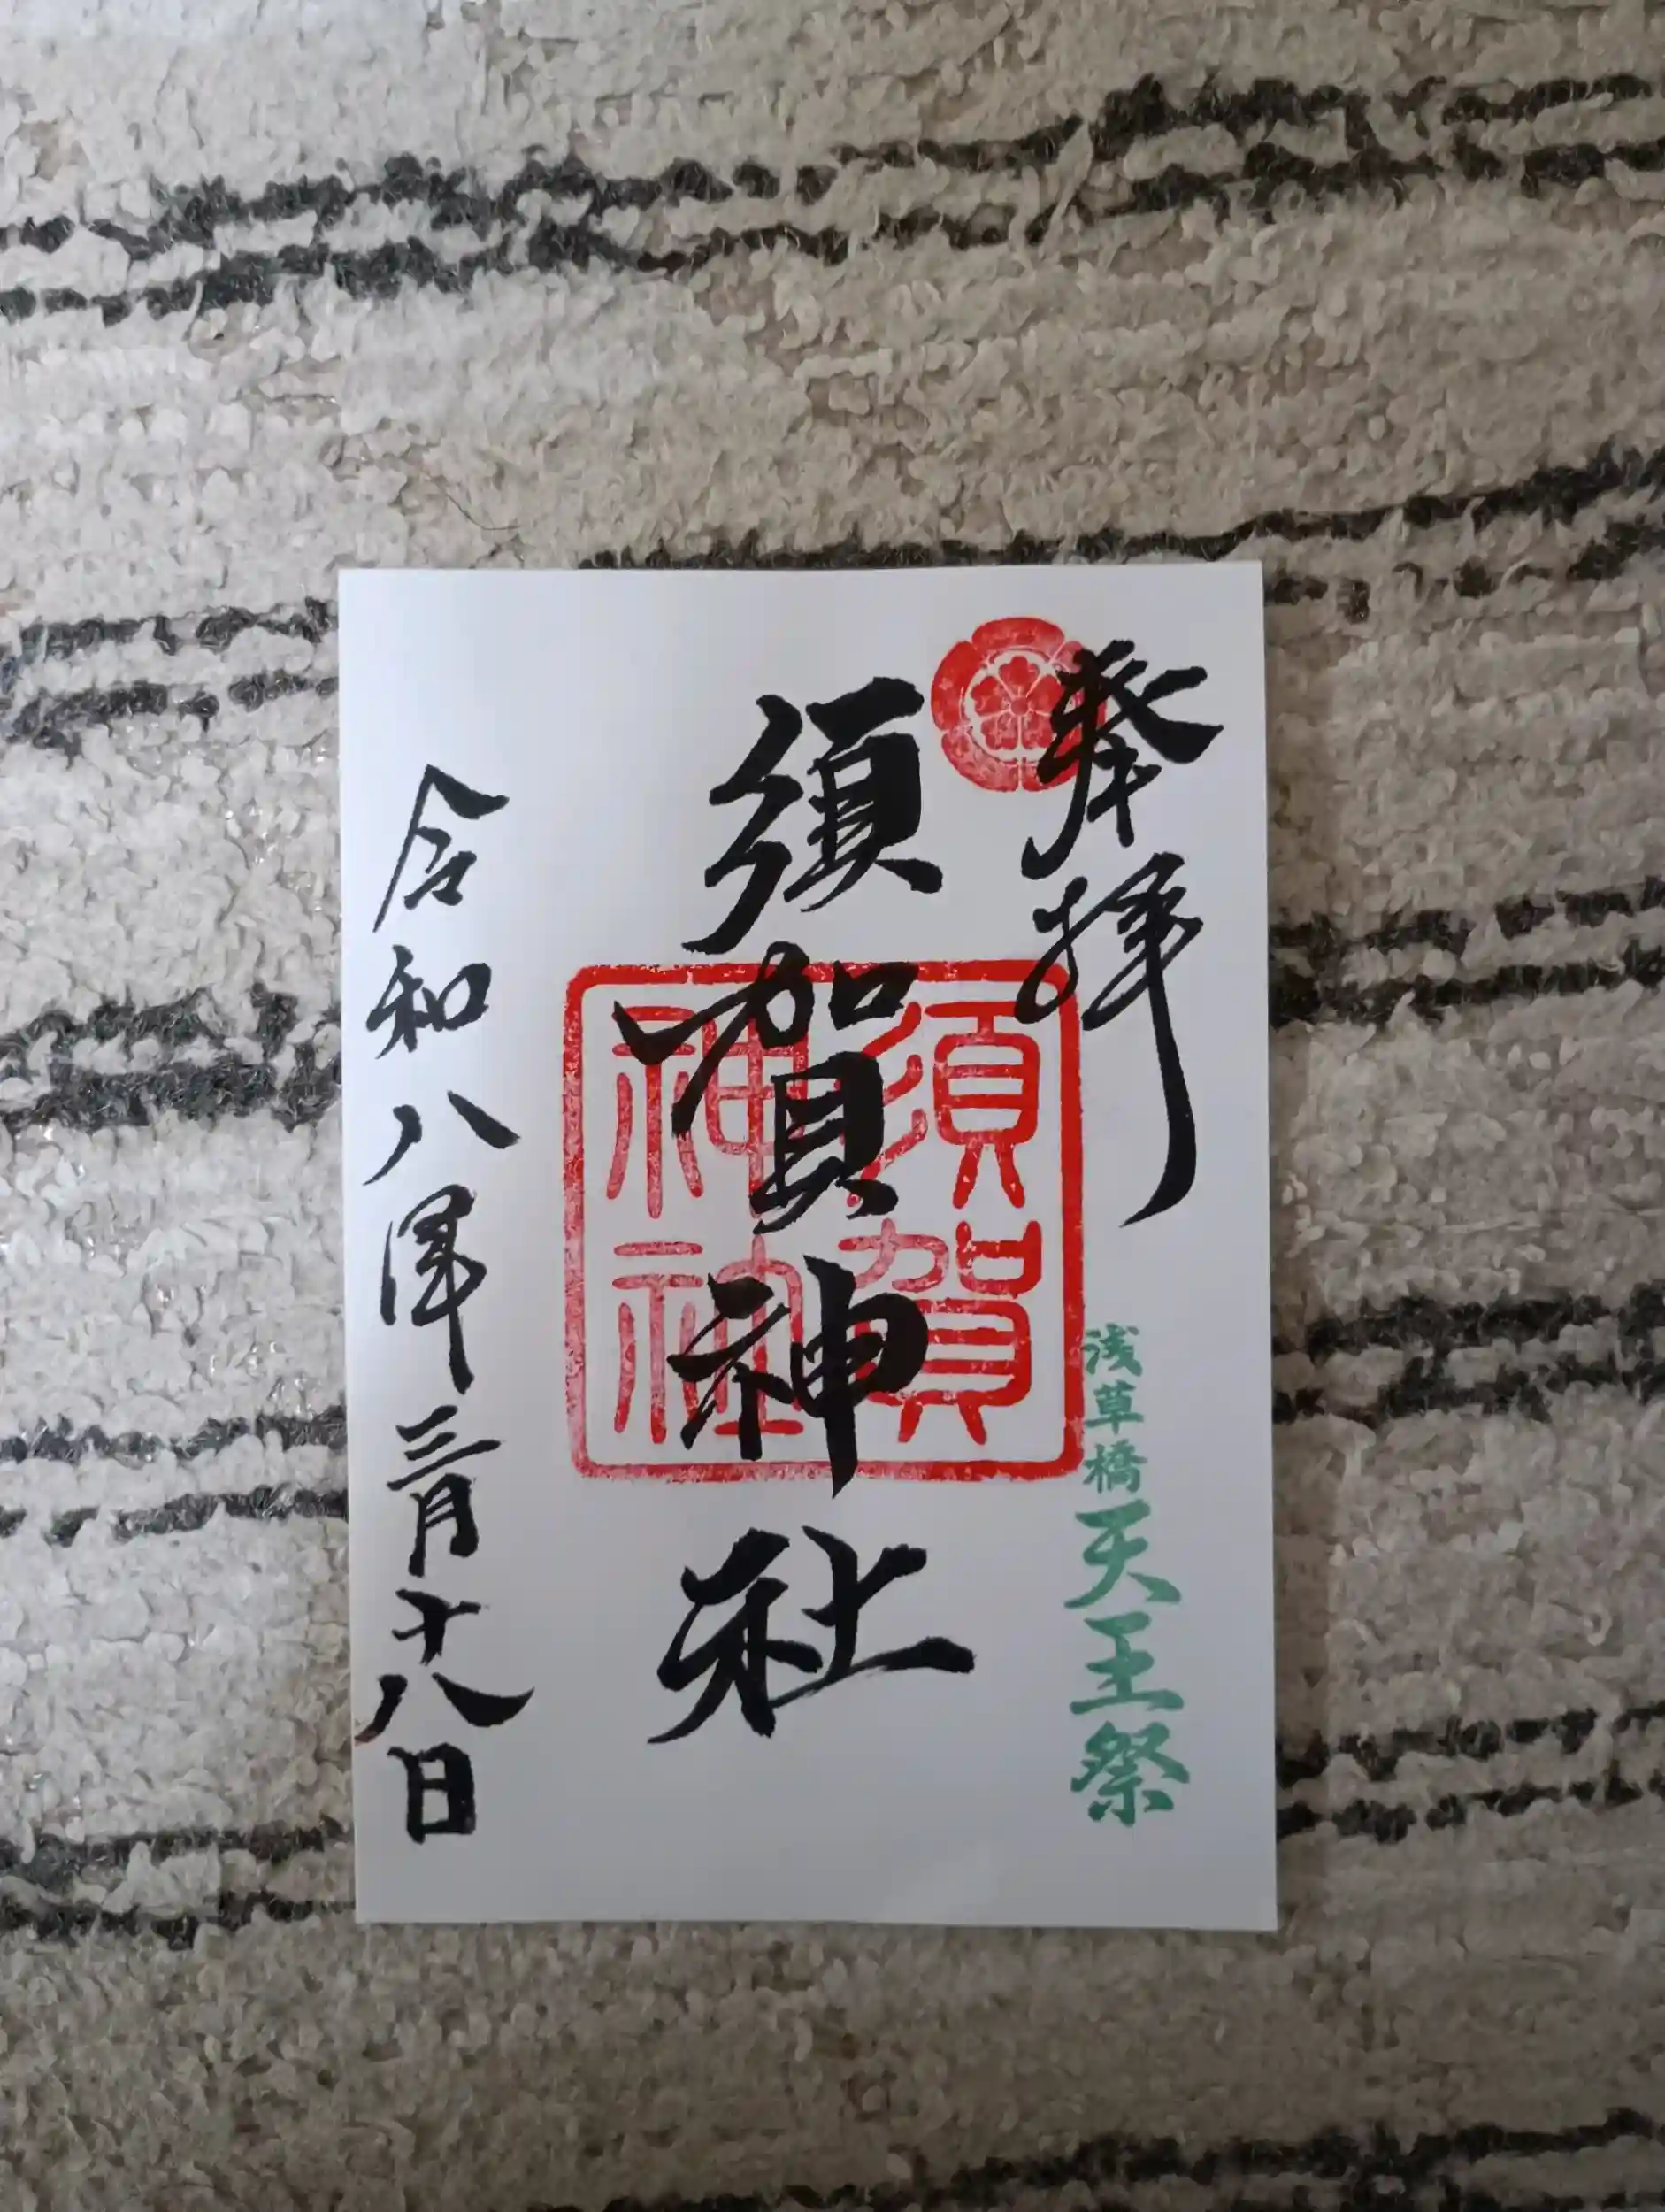 奉拝
浅草橋天王祭
須賀神社
須賀
神社
令和八年三月十八日